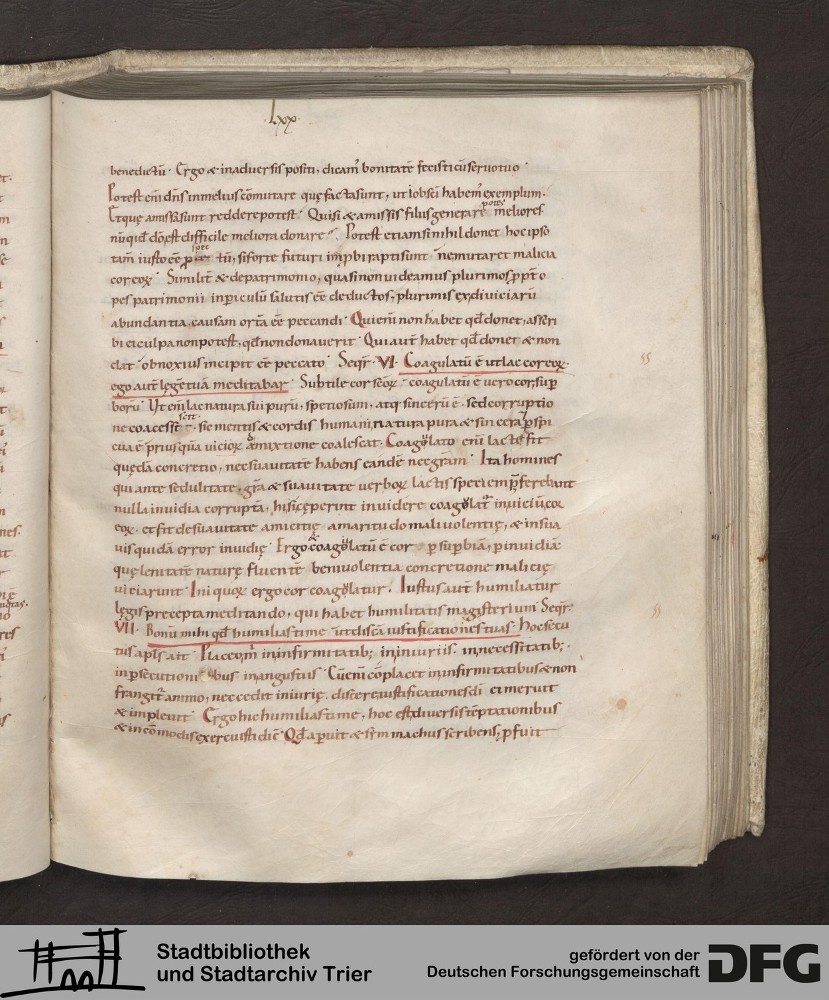 Lxx
benedictū· Ergo & inadversis positi, dicam' bonitatē fecisti cū servo tuo·
Potest eni dn̄s inmelius cōmutare quę facta sunt, ut iob sci habem' exemplum·
Et quę amissa sunt reddere potest· Qui si & amissis filiis generare potest meliores
nūquid difficile meliora donare· Potest etiam si nihil donet hoc ipso
tam̄ iusto eē tū, si forte futuri inprobi rapti sunt ne mutaret malicia
cor eoꝝ· Similit̄ & de patrimonio, quasi non videamus plurimos ppt̄ o
pes patrimonii in piculū salutis eē deductos, plurimis ex diviciarū
abundantia causam ortā eē peccandi· Qui eni non habet qđ donet, asscri
bi ei culpa non potest, qđ non donaverit· Qui aut̄ habet qđ donet & non
elat obnoxius incipit eē peccato· Seqr̄· VI· Coagulatū ē ut lac cor eoꝝ·
ego aut̄ legē tuā meditabar· Subtile cor scōꝝ· coagulatū ē vero cor sup
borū· Ut eni lac natura sui purū, speciosum, atq; sincerū ē· sed corruptio
ne coacescit· sic mentis & cordis humani natura pura & sincera pspi
cua ē priusquā vicioꝝ amixtione coalescat· Coagulato eni lacte fit
quędā concretio, nec suavitatē habens candē nec gram̄· Ita homines
qui ante sedulitate, gr̄a & suavitate verboꝝ lactis speciem p̄ferebant
nulla invidia corrupta, hi si ceperint invidere coagulat̄ in viciū cor
eoꝝ· et fit de suavitate amicitię amaritudo malivolentię, & insua
vis quidā error invidię· Ergo coagulatū ē cor p supbiā, p invidiā·
quę lenitatē naturę fluentē benivolentia concretione malicię
viciarunt· Iniquoꝝ ergo cor coagulatur· Iustus aut̄ humiliatur
legis precepta meditando, qui habet humilitatis magisterium· Seqr̄·
VII· Bonū mihi qđ humiliasti me ut discā iustificationes tuas· Hoc secu
tus apl̄s ait· Placeo m̄ in infirmitatib; in iniuriis· in necessitatib;·
in psecutionibus· in angustiis· Cū eni cōplacet in infirmitatibus & non
frangit̄ animo, nec cedit iniurię· discere iustificationes dī ei meruit
& implevit· Ergo hic humiliasti me, hoc est, diversis tēptationibus
& incōmodis exercuisti dic̄· Qđ apuit & symmachus scribens, p fuit
ss
ss
Stadtbibliothek
und Stadtarchiv Trier
gefördert von der
Deutschen Forschungsgemeinschaft
DFG